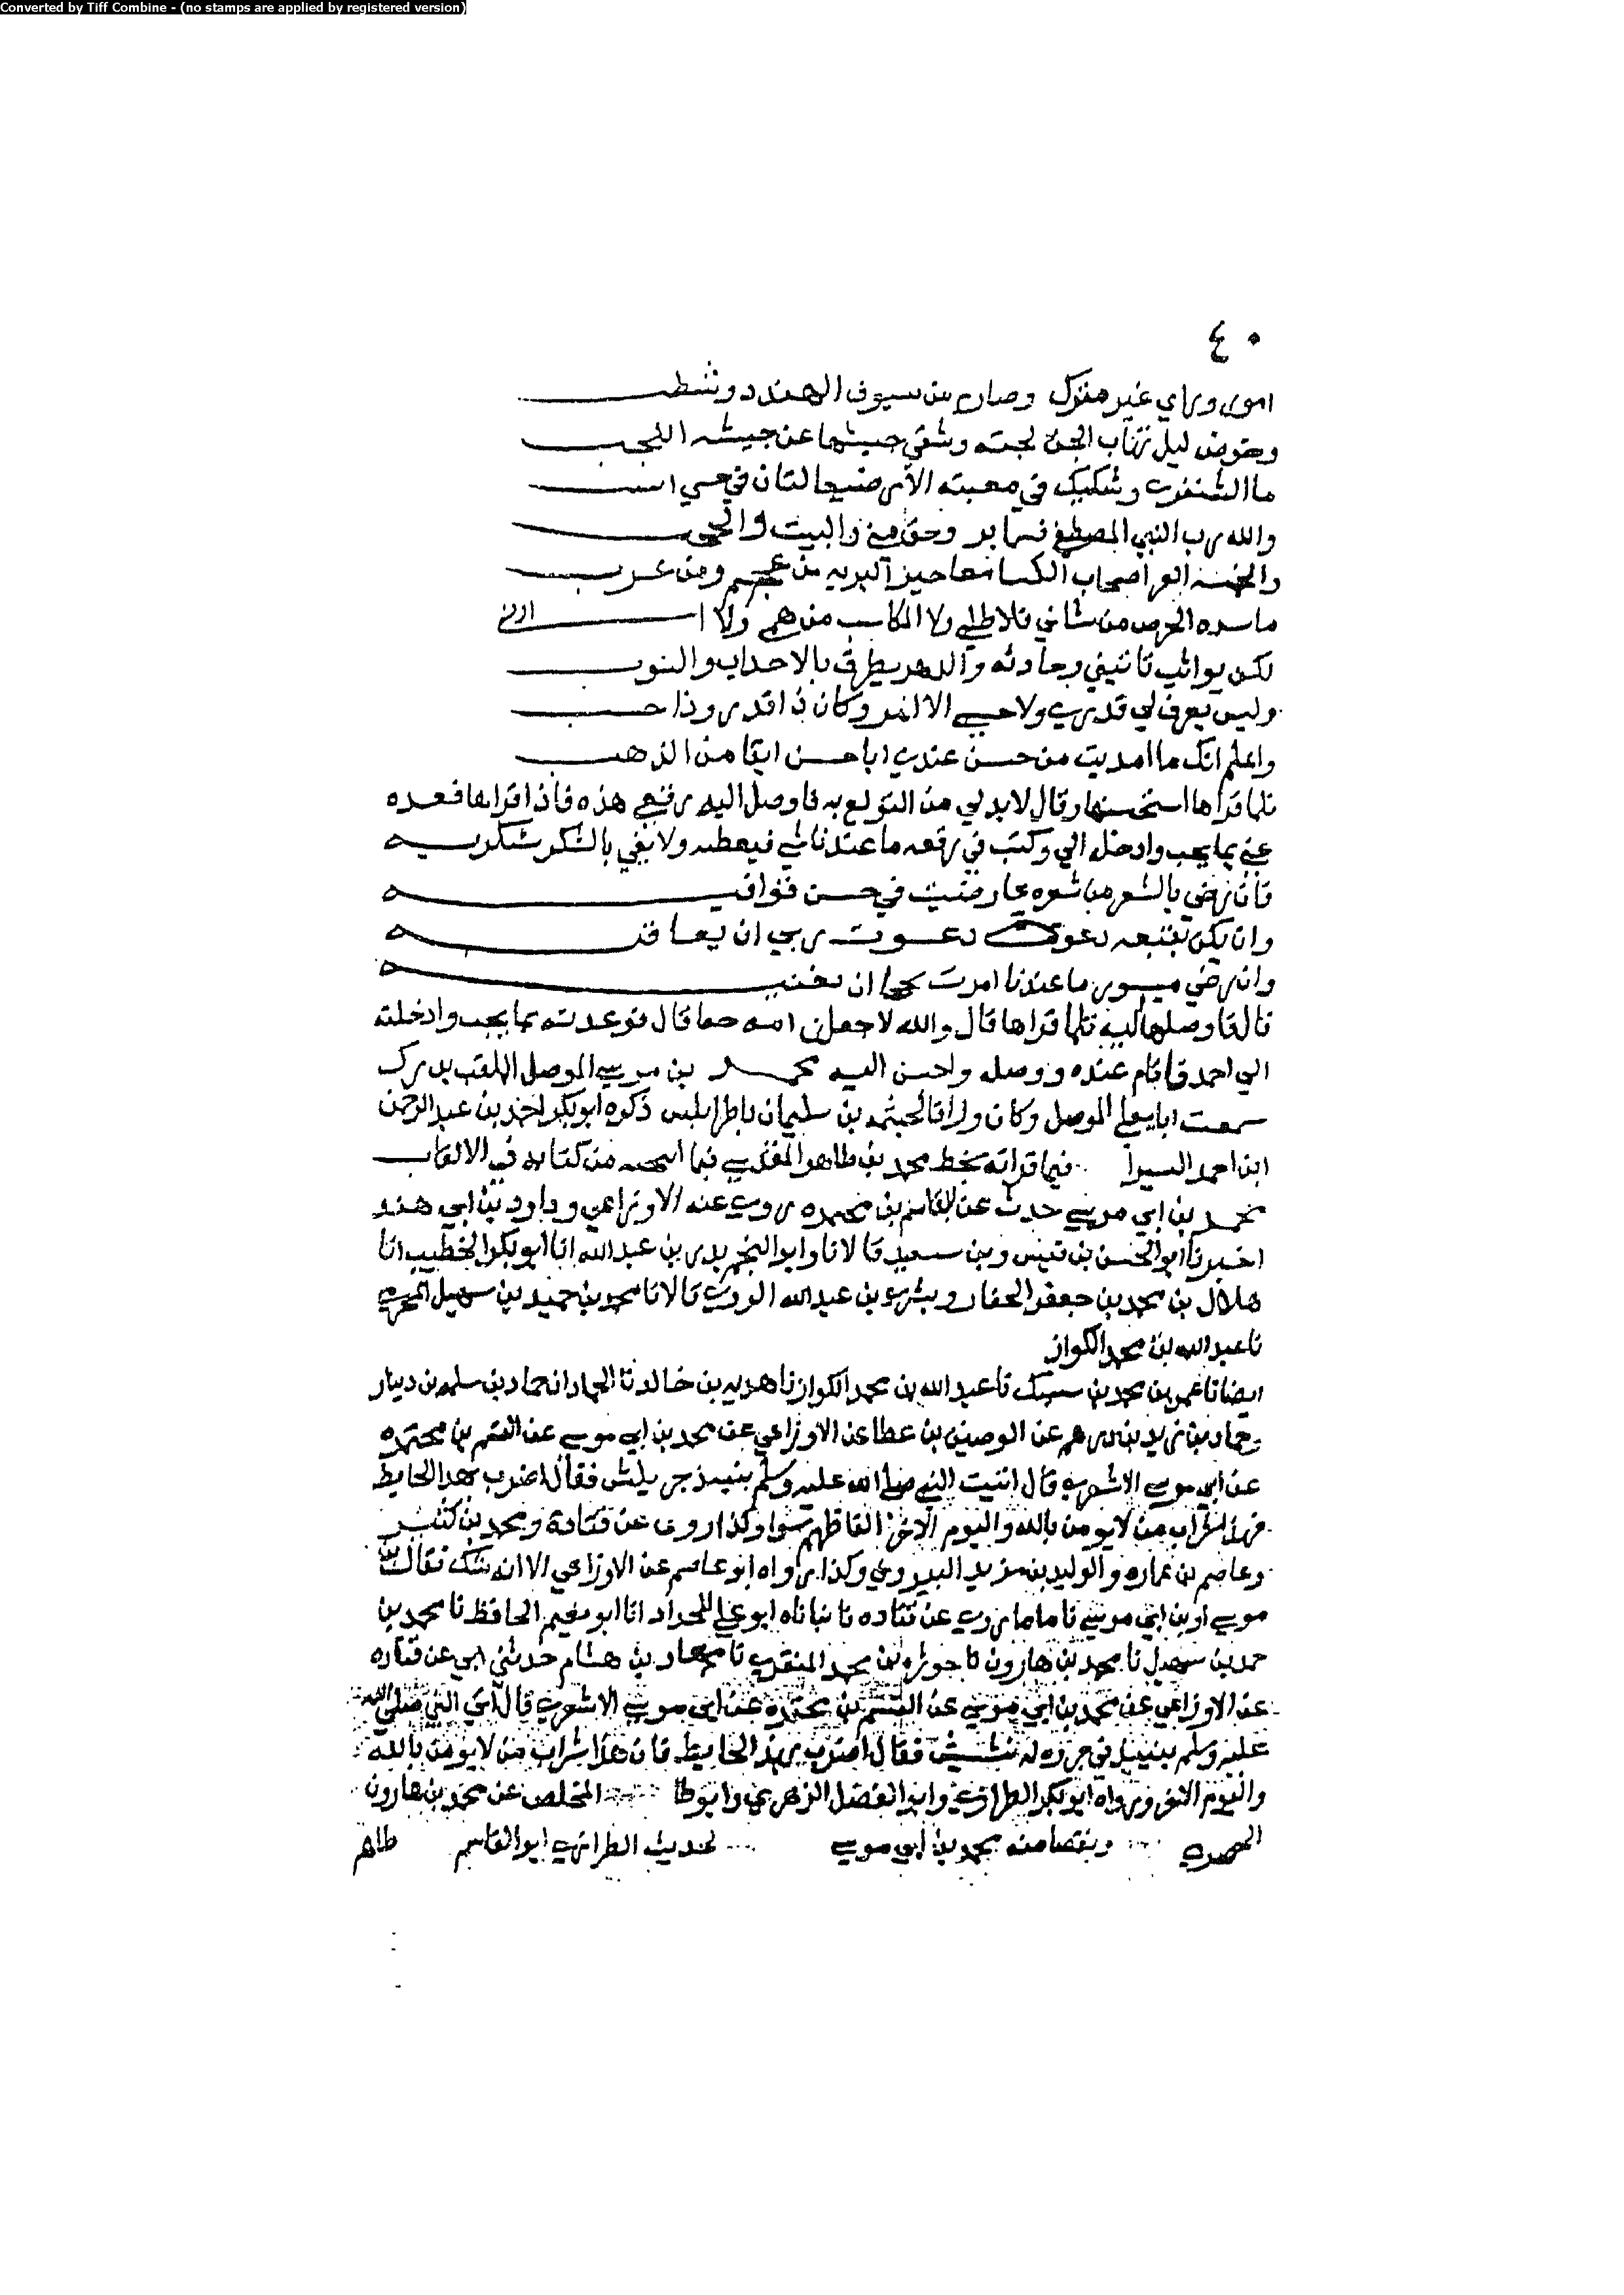 Converted by Tiff Combine - (no stamps are applied by registered version)
٤٠
وراي غير وصارم من سيوف الهند
ليل الجن لجته وشقي عن جيشه اللجب
ما الشنفرى في الارض
والله رب النبي المصطفى قسما بر وحق منى والبيت والحجب
والخمسة الغر اصحاب الكسا معا خير البرية من عجم ومن عرب
ما الحرص من شاني فلا طلبي ولا المكاسب من همي ولا ارب
لكن نوائب وحادثه والدهر يطرق بالاحداث والنوب
وليس يعرف لي قدري ولا حسبي الا امرو كان ذا قدر وذا حسب
واعلم انك ما اسديت من حسن عندي ابا حسن ابقا من الذهب
فلما قراها استحسنها وقال لابد لي من التولع به فاوصل اليه رقعتي هذه فاذا قراها فعده
عني بما يحب وادخله الي وكتب في رقعه ما عندنا شي فيعطيه ولا يفي بالشكر شكريه
فان رضي بالشعر من شعره عارضت في حسن قوافيه
وان يكن تقنعه دعوة دعوت ربي ان يعافيه
وان رضي ميسور ما عندنا امرت
قال فاوصلها اليه فلما قراها قال والله فوعدته بما يحب وادخلته
الي احمد فاقام عنده ووصله واحسن اليه محمد بن موسى الموصلي الملقب
سمعت ابا يعلى الموصلي بن سليمان باطرابلس ذكره ابو بكر احمد بن عبد الرحمن
ابن احمد فيما قراته بخط محمد بن طاهر المقدسي فيما من كتابه في الالقاب
محمد بن ابي موسى حدث عن القاسم بن مخيمره روى عنه الاوزاعي وداود بن ابي هند
اخبرنا ابو الحسن بن قبيس وبن سعيد قالا نا وابو النجم بدر بن عبد الله انا ابو بكر الخطيب انا
هلال بن محمد بن جعفر الحفار بن عبد الله قالا نا محمد بن حميد بن سهيل
نا عبد الله بن محمد الكواز
ايضا نا عمر بن محمد بن سبنك نا عبد الله بن محمد الكواز نا هدبه بن خالد نا حماد بن سلمه بن دينار
وحماد بن زيد بن درهم عن الوضين بن عطا عن الاوزاعي عن محمد بن ابي موسى عن القسم بن مخيمره
عن ابي موسى الاشعري قال اتيت النبي صلى الله عليه وسلم بنبيذ جر ينش فقال اضرب بهذا الحايط
فهذا شراب من لا يومن بالله واليوم الاخر الفاظهم سوا وكذا روى عن قتادة ومحمد بن كثير
وعاصم بن عماره والوليد بن مزيد البيروتي وكذا رواه ابو عاصم عن الاوزاعي الا انه شك فقال عن
موسى او بن ابي موسى فاما ما روى عن قتاده فانباناه ابو علي الحداد انا ابو نعيم الحافظ نا محمد بن
حمد بن سهيل نا محمد بن هارون نا بن محمد المنقري نا معاذ بن هشام حدثني ابي عن قتاده
عن الاوزاعي عن محمد بن ابي موسى عن القسم بن مخيمره عن ابي موسى الاشعري قال اتي النبي صلى الله
عليه وسلم بنبيذ في جره له نشيش فقال اضرب بهذا الحايط فان هذا شراب من لا يومن بالله
واليوم الاخر ورواه ابو بكر الطرازي وابو الفضل الزهري وابو طا المخلص عن محمد بن هارون
منه محمد بن ابي موسى ابو القاسم طاهر